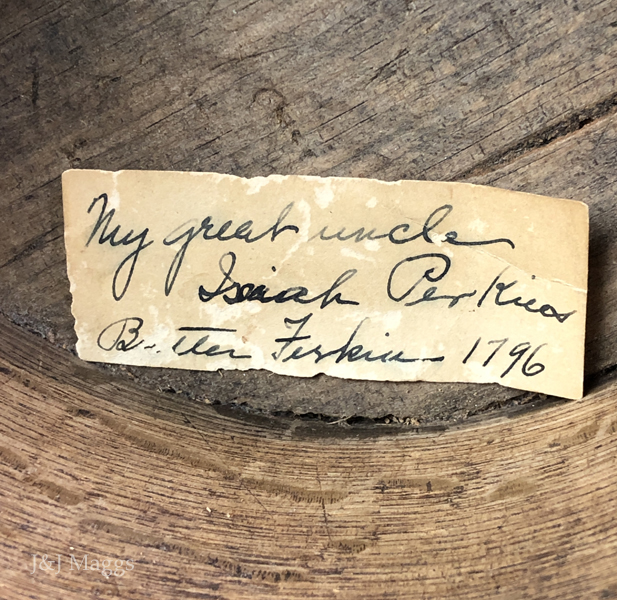 My great uncle
Isaiah Perkins
Butter Ferkin - 1796
J&J Maggs